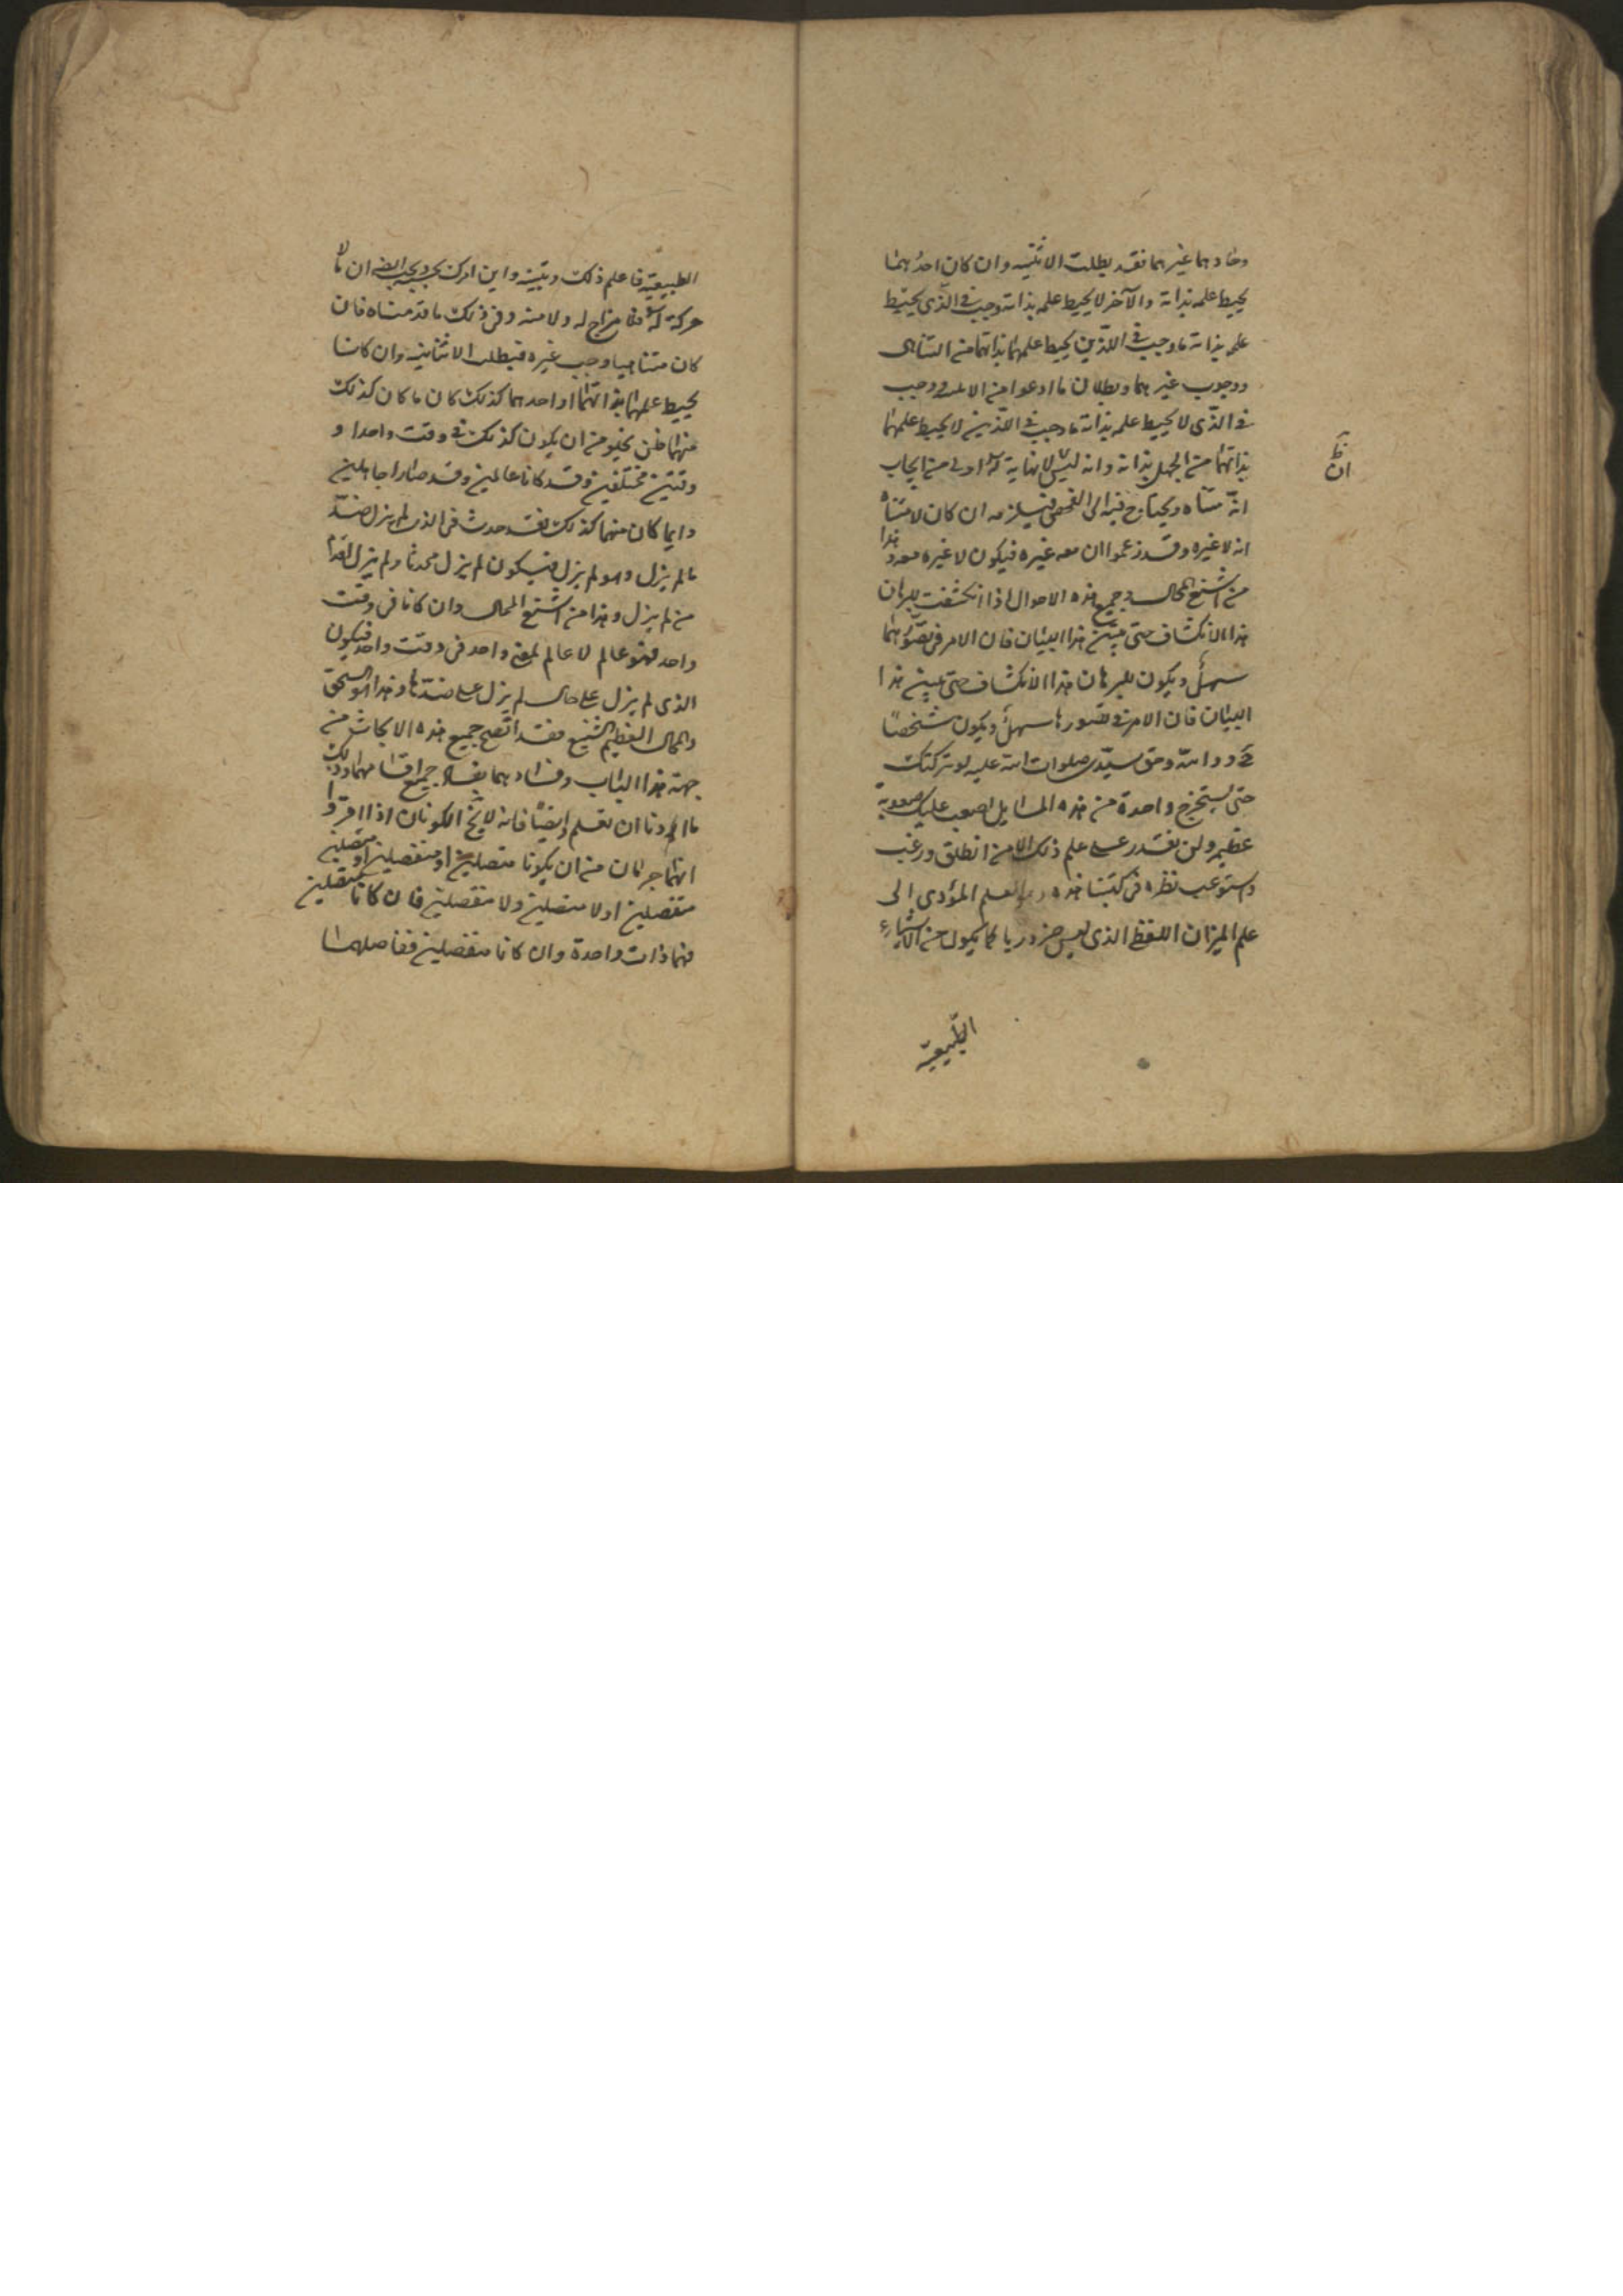 وحادهما غيرهما فقد بطلت الاثنينيه وان كان احدهما
يحيط علمه بذاته والآخر لا يحيط علمه بذاته وجب فى الّذى يحيط
علمه بذاته ما وجب فى اللّذين يحيط علمهما بذاتهما من التناهى
ووجوب غيرهما وبطلان ما ادعوا من ووجب
فى الذّى لا يحيط علمه بذاته ما وجب فى اللّذين لا يحيط علمهما
بذاتهما من الجهل بذاته وانه ليس لا نهاية له اولى من ايجاب
ان
انّه متناه ويحتاج فيه الى الفحص فيلزمه ان كان لا متناه
انه لا غيره وقد زعموا ان معه غيره فيكون لا غيره معه وهذا
من اشنع المحال وجميع هذه الاحوال اذا انكشفت للبرهان
هذا الانكشاف حتى يبين هذا البيان فان الامر فى تصورهما
سهل ويكون للبرهان هذا الانكشاف حتى يبين هذا
البيان فان الامر فى تصورها سهل ويكون شخصاً
والله وحق سيّدى صلوات الله عليه لو تركتك
حتى يستخرج واحدة من هذه المسايل لصعب عليك صعوبة
عظيم ولن تقدر على علم ذلك الا من انطلق ورغب
واستوعب نظره فى كتبنا هذه العلم المؤدى الى
علم الميزان اللفظ الذى ليس ضروريا كما يكون من الاشياء
الطّبيعيّة
الطبيعيّة فاعلم ذلك وتبيّنه واين امرك ان ما لا
حركة له فلا مزاج له ولا منه وفى ذلك ما قدمناه فان
كان متناهيا وجب غيره فبطلت الاثنانيه وان كانا
يحيط علمهما بذاتهما او احدهما كذلك كان ما كان كذلك
منهما فلن يخلو من ان يكون كذلك فى وقت واحد او
وقتين مختلفين وقد كانا عالمين وقد صارا جاهلين
وايما كان منهما كذلك فقد حدث فى الذى لم يزل ضدّ
ما لم يزل وهو لم يزل فيكون لم يزل محدثا ولم يزل
من لم يزل وهذا من اشنع المحال وان كانا فى وقت
واحد فهو عالم لا عالم لمعنى واحد فى وقت واحد فيكون
الذى لم يزل على حال لم يزل على ضدّها وهذا هو السحق
والمحال العظيم الشنيع فقد اتّضح جميع هذه الابحاث من
جهة هذا الباب وفسادهما بفساد جميع اقسامهما وذلك
ما اردنا ان نعلم وايضاً فانه لا يخ الكونان اذا اقرّوا
انهما جرمان من ان يكونا متصلين او منفصلين او متصلين
منفصلين او لا متصلين ولا منفصلين فان كانا متصلين
فهما ذات واحدة وان كانا منفصلين ففاصلهما